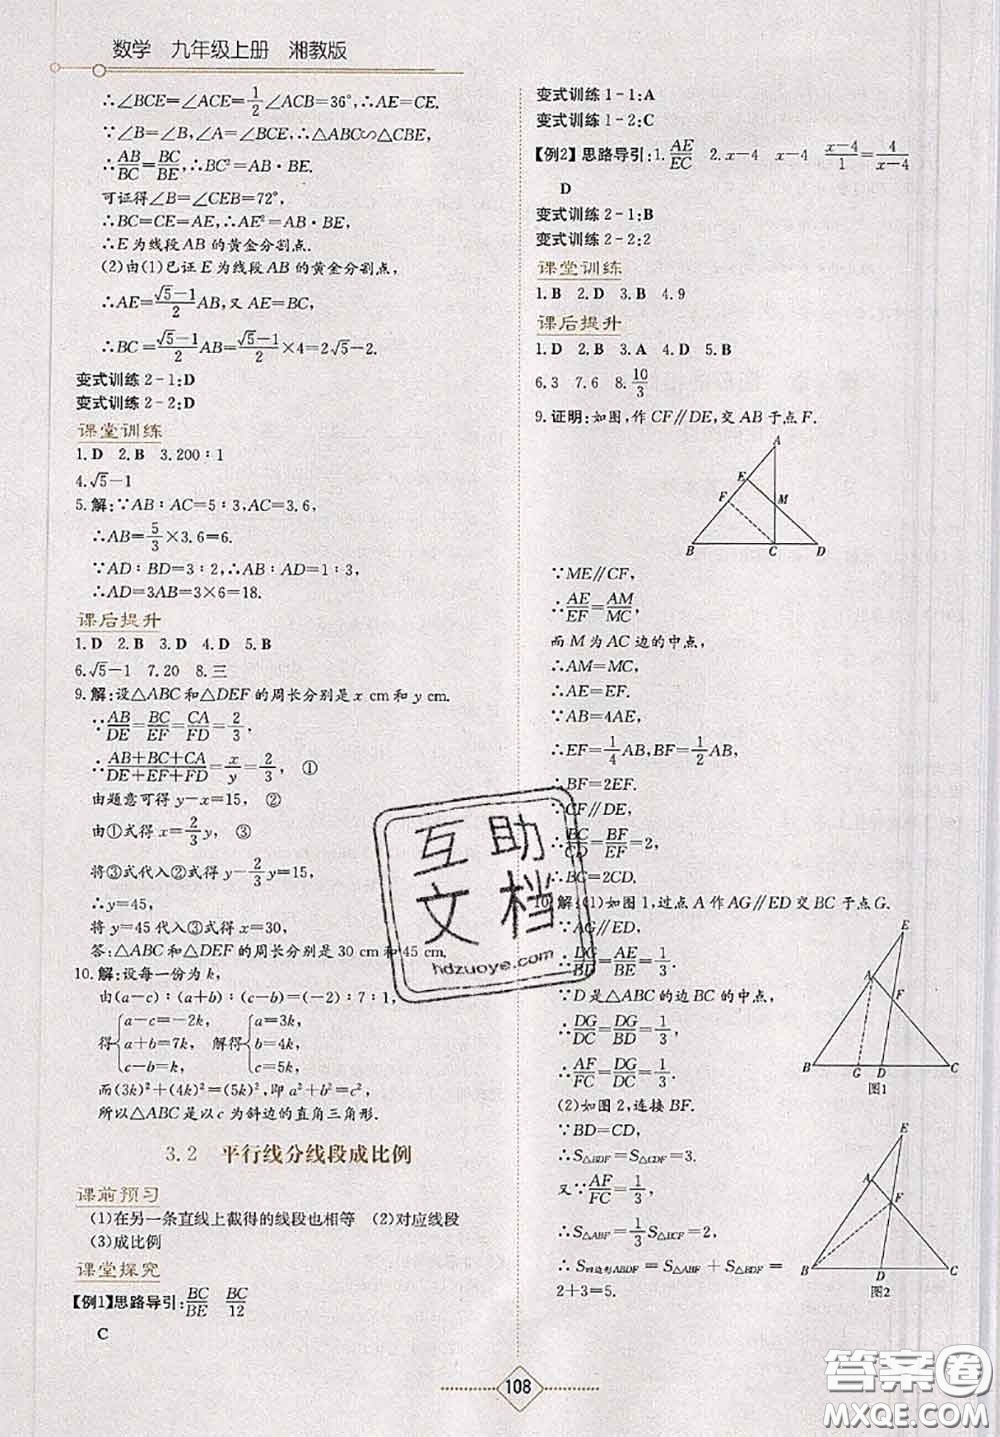 数学 九年级上册 湘教版
∴∠BCE=∠ACE=1/2∠ACB=36°,∴AE=CE.
∵∠B=∠B,∠A=∠BCE,∴△ABC∽△CBE,
∴AB/BC=BC/BE,∴BC²=AB·BE.
可证得∠B=∠CEB=72°,
∴BC=CE=AE,∴AE²=AB·BE,
∴E为线段AB的黄金分割点.
(2)由(1)已证E为线段AB的黄金分割点,
∴AE=(√5-1)/2 AB,又AE=BC,
∴BC=(√5-1)/2 AB=(√5-1)/2×4=2√5-2.
变式训练2-1:D
变式训练2-2:D
课堂训练
1.D 2.B 3.200:1
4.√5-1
5.解:∵AB:AC=5:3,AC=3.6,
∴AB=5/3×3.6=6.
∵AD:BD=3:2,∴AB:AD=1:3,
∴AD=3AB=3×6=18.
课后提升
1.D 2.B 3.D 4.D 5.B
6.√5-1 7.20 8.三
9.解:设△ABC和△DEF的周长分别是x cm和y cm.
∵AB/DE=BC/EF=CA/FD=2/3,
∴(AB+BC+CA)/(DE+EF+FD)=x/y=2/3, ①
由题意可得y-x=15, ②
由①式得x=2/3y, ③
将③式代入②式得y-2/3y=15,
∴y=45,
将y=45代入③式得x=30,
答:△ABC和△DEF的周长分别是30 cm和45 cm.
10.解:设每一份为k,
由(a-c):(a+b):(c-b)=(-2):7:1,
得{a-c=-2k, a+b=7k, c-b=k, 解得{a=3k, b=4k, c=5k,
而(3k)²+(4k)²=(5k)²,即a²+b²=c²,
所以△ABC是以c为斜边的直角三角形.
3.2 平行线分线段成比例
课前预习
(1)在另一条直线上截得的线段也相等 (2)对应线段
(3)成比例
课堂探究
【例1】思路导引:BC/BE BC/12
C
变式训练1-1:A
变式训练1-2:C
【例2】思路导引:1.AE/EC 2.x-4 x-4 (x-4)/1=4/(x-4)
D
变式训练2-1:B
变式训练2-2:2
课堂训练
1.B 2.D 3.B 4.9
课后提升
1.D 2.B 3.A 4.D 5.B
6.3 7.6 8.10/3
9.证明:如图,作CF∥DE,交AB于点F.
A
E
F M
B C D
∵ME∥CF,
∴AE/EF=AM/MC,
而M为AC边的中点,
∴AM=MC,
∴AE=EF.
∵AB=4AE,
∴EF=1/4AB,BF=1/2AB,
∴BF=2EF.
∵CF∥DE,
∴BC/CD=BF/EF=2,
∴BC=2CD.
10.解:(1)如图1,过点A作AG∥ED交BC于点G.
∵AG∥ED,
∴GD/BD=AE/BE=1/3.
∵D是△ABC的边BC的中点,
∴DG/DC=DG/BD=1/3,
∴AF/FC=DG/DC=1/3.
E
A
F
B G D C
图1
(2)如图2,连接BF.
∵BD=CD,
∴S△BDF=S△CDF=3.
又∵AF/FC=1/3,
∴S△ABF=1/3S△BCF=2,
∴S四边形ABDF=S△ABF+S△BDF=
2+3=5.
E
A
F
B D C
图2
互助
文档
hdzuoye.com
108
答案圈
MXQE.COM